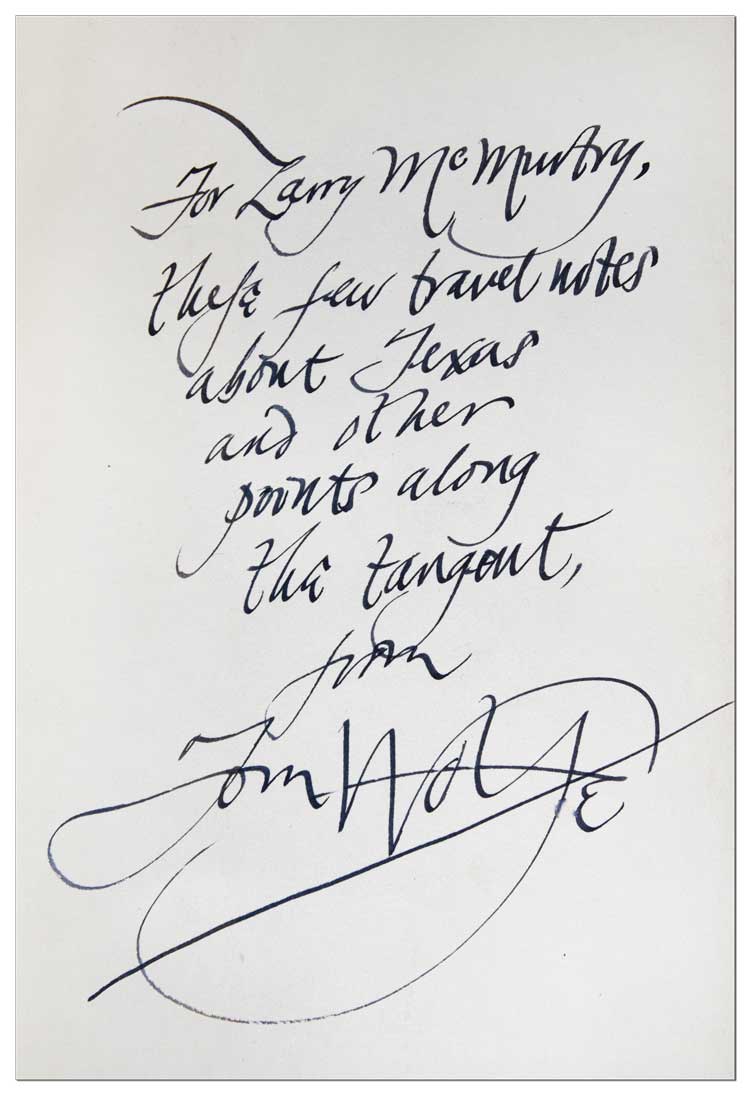 For Larry McMurtry,
these few travel notes
about Texas
and other
points along
the tangent,
from
Tom Wolfe